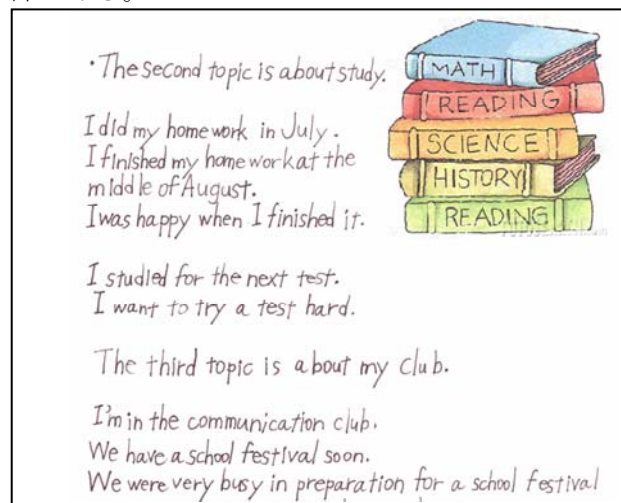 ・The second topic is about study.
I did my homework in July.
I finished my homework at the
middle of August.
I was happy when I finished it.
I studied for the next test.
I want to try a test hard.
The third topic is about my club.
I'm in the communication club.
We have a school festival soon.
We were very busy in preparation for a school festival
MATH
READING
SCIENCE
HISTORY
READING